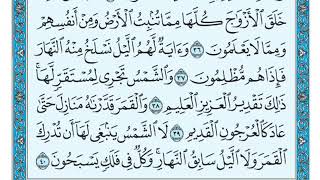 خَلَقَ ٱلْأَزْوَٰجَ كُلَّهَا مِمَّا تُنۢبِتُ ٱلْأَرْضُ وَمِنْ أَنفُسِهِمْ
وَمِمَّا لَا يَعْلَمُونَ ٣٦ وَءَايَةٌ لَّهُمُ ٱلَّيْلُ نَسْلَخُ مِنْهُ ٱلنَّهَارَ
فَإِذَا هُم مُّظْلِمُونَ ٣٧ وَٱلشَّمْسُ تَجْرِى لِمُسْتَقَرٍّ لَّهَا ۚ
ذَٰلِكَ تَقْدِيرُ ٱلْعَزِيزِ ٱلْعَلِيمِ ٣٨ وَٱلْقَمَرَ قَدَّرْنَٰهُ مَنَازِلَ حَتَّىٰ
عَادَ كَٱلْعُرْجُونِ ٱلْقَدِيمِ ٣٩ لَا ٱلشَّمْسُ يَنۢبَغِى لَهَآ أَن تُدْرِكَ
ٱلْقَمَرَ وَلَا ٱلَّيْلُ سَابِقُ ٱلنَّهَارِ ۚ وَكُلٌّ فِى فَلَكٍ يَسْبَحُونَ ٤٠